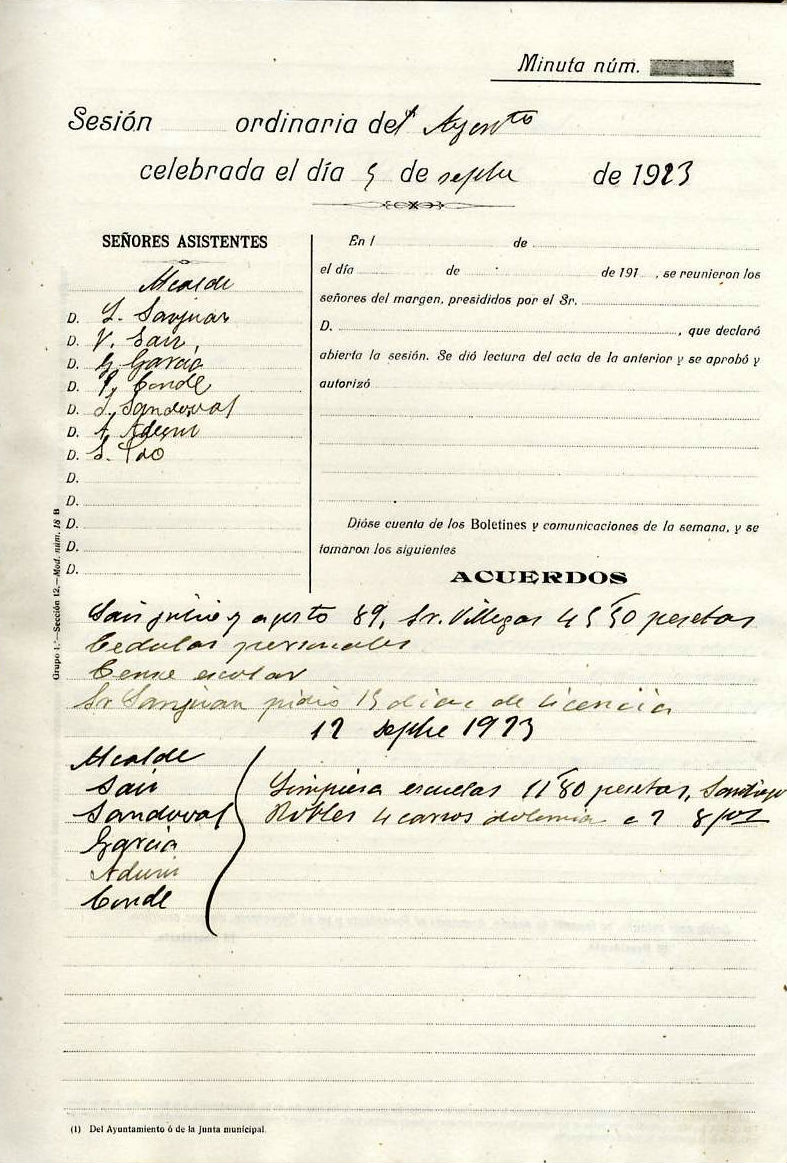 Minuta núm.
Sesión ordinaria del Aynto
celebrada el día 5 de sepbre de 1923
SEÑORES ASISTENTES
Alcalde
D. L. Sanjuan
D. V. Sain
D. G. Garcia
D. P. Conde
D. J. Sandoval
D. A. Aduin
D. S.
D.
D.
D.
D.
D.
En l de
el día de de 191 , se reunieron los
señores del margen, presididos por el Sr.
D. , que declaró
abierta la sesión. Se dió lectura del acta de la anterior y se aprobó y
autorizó
Dióse cuenta de los Boletines y comunicaciones de la semana, y se
tomaron los siguientes
ACUERDOS
julio y agosto 89, Sr. Villegas 4 pesetas
Cedulas personales
Censo escolar
Sr Sanjuan pidio 15 dias de licencia
12 sepbre 1923
Alcalde
Sain
Sandoval
Garcia
Aduin
Conde
Limpiesa escuelas 11'80 pesetas, Santiago
Robles 4 carros a 2 8 pts
Grupo 1.º—Sección 12.—Mod. núm. 18 B
(1) Del Ayuntamiento ó de la Junta municipal.